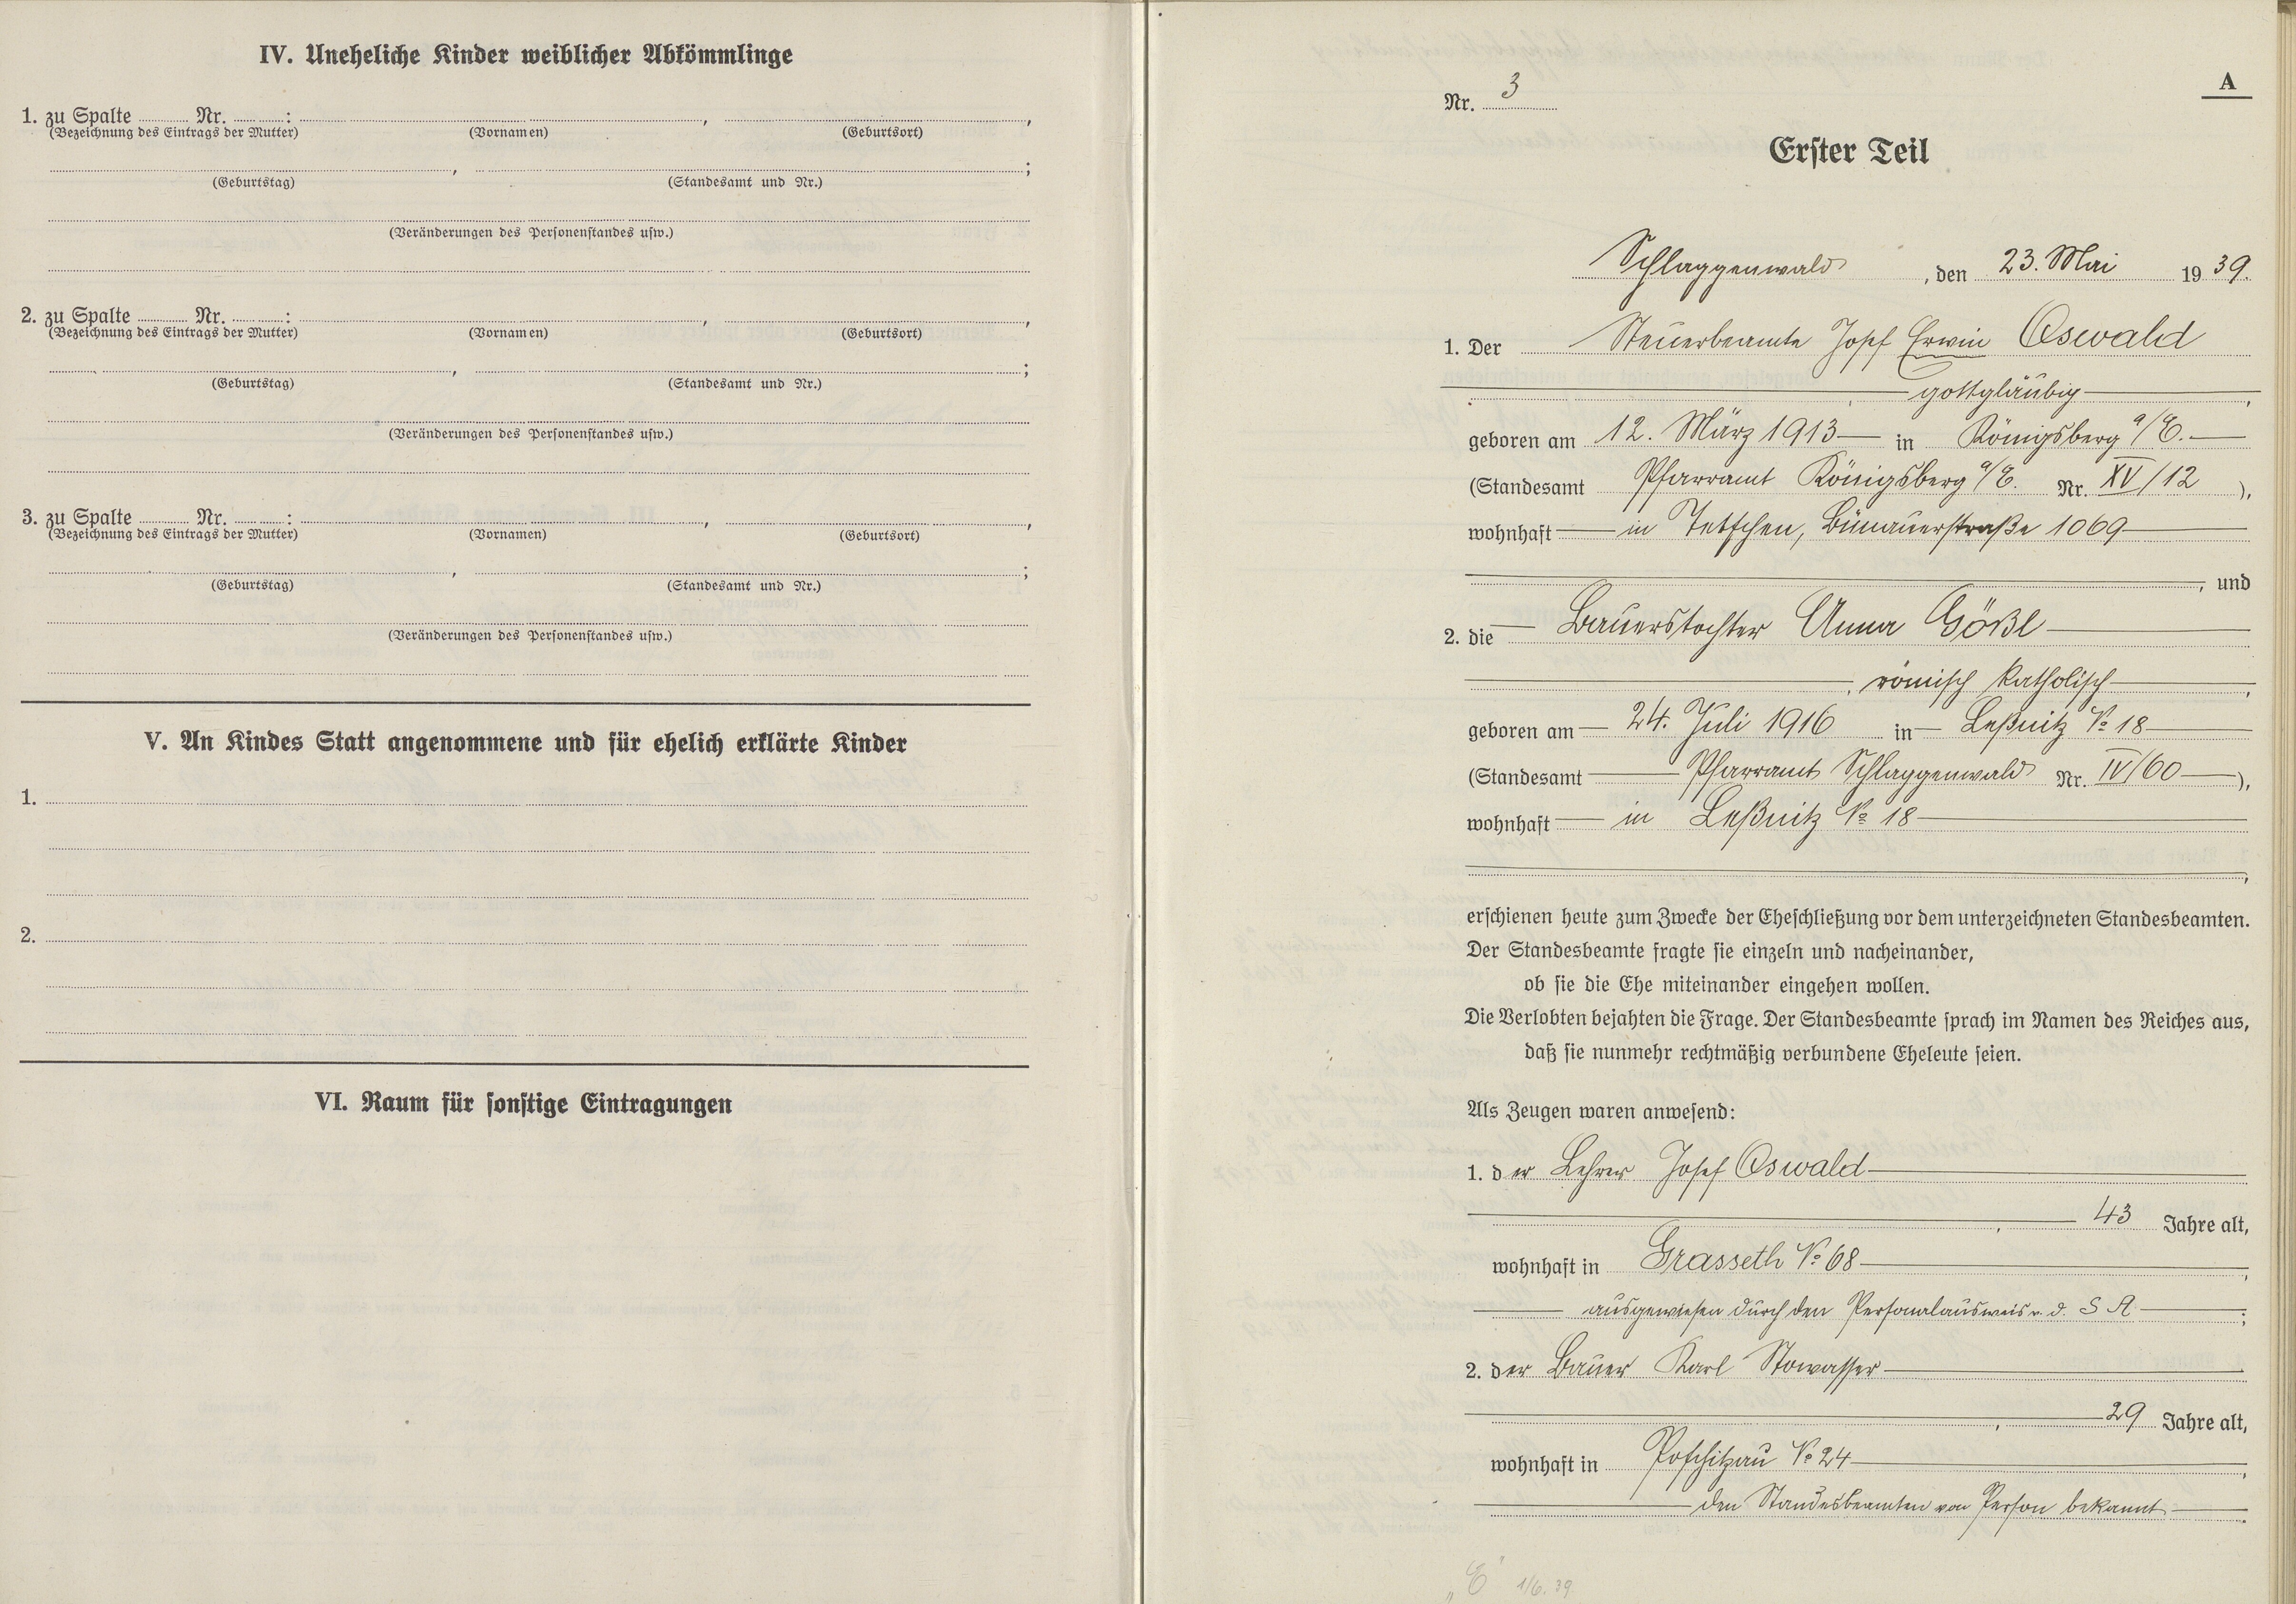 IV. Uneheliche Kinder weiblicher Abkömmlinge
1. zu Spalte Nr. : , ,
(Bezeichnung des Eintrags der Mutter) (Vornamen) (Geburtsort)
, ;
(Geburtstag) (Standesamt und Nr.)
(Veränderungen des Personenstandes usw.)
2. zu Spalte Nr. : , ,
(Bezeichnung des Eintrags der Mutter) (Vornamen) (Geburtsort)
, ;
(Geburtstag) (Standesamt und Nr.)
(Veränderungen des Personenstandes usw.)
3. zu Spalte Nr. : , ,
(Bezeichnung des Eintrags der Mutter) (Vornamen) (Geburtsort)
, ;
(Geburtstag) (Standesamt und Nr.)
(Veränderungen des Personenstandes usw.)
V. An Kindes Statt angenommene und für ehelich erklärte Kinder
1.
2.
VI. Raum für sonstige Eintragungen
A
Nr. 3
Erster Teil
Schlaggenwald, den 23. Mai 1939.
1. Der Steuerbeamte Josef Erwin Oswald
gottgläubig,
geboren am 12. März 1913 in Königsberg a/E.
(Standesamt Pfarramt Königsberg a/E. Nr. XV/12),
wohnhaft in Tetschen, Bünauerstraße 1069
, und
2. die Bauerstochter Anna Gößl
, römisch katholisch,
geboren am 24. Juli 1916 in Leßnitz No 18
(Standesamt Pfarramt Schlaggenwald Nr. IV/60),
wohnhaft in Leßnitz No 18
,
erschienen heute zum Zwecke der Eheschließung vor dem unterzeichneten Standesbeamten.
Der Standesbeamte fragte sie einzeln und nacheinander,
ob sie die Ehe miteinander eingehen wollen.
Die Verlobten bejahten die Frage. Der Standesbeamte sprach im Namen des Reiches aus,
daß sie nunmehr rechtmäßig verbundene Eheleute seien.
Als Zeugen waren anwesend:
1. der Lehrer Josef Oswald
, 43 Jahre alt,
wohnhaft in Grasseth No 68,
ausgewiesen durch den Personalausweis v. d. S A;
2. der Bauer Karl Stowasser
, 29 Jahre alt,
wohnhaft in Poschitzau No 24,
den Standesbeamten von Person bekannt.
„E" 1/6. 39